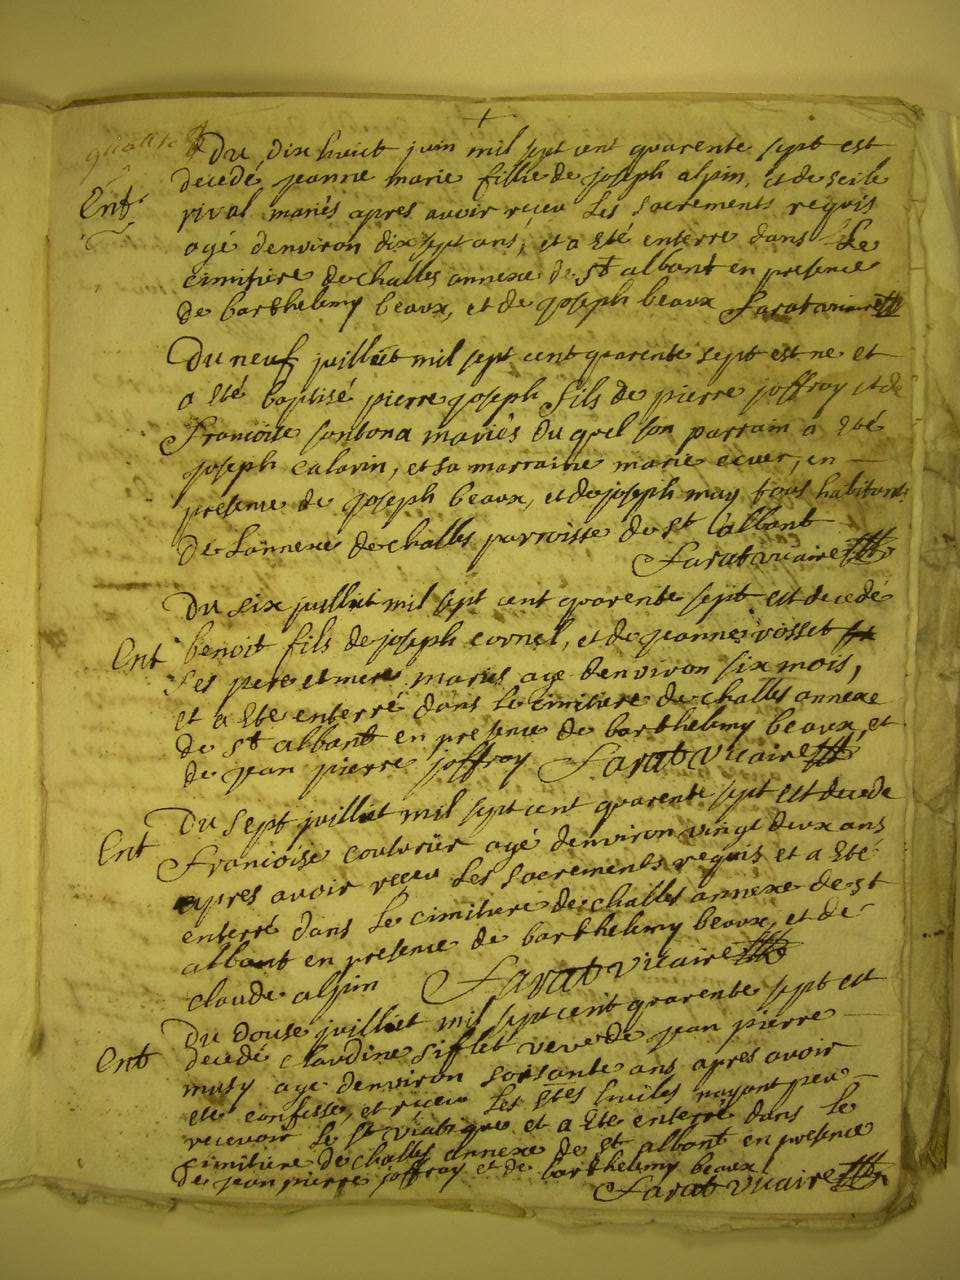 +
Du dix huict juin mil sept cent quarente sept est
Ent decedé jeanne marie fillie de joseph alpin, et de
rival mariés apres avoir receu les sacrements requis
agé denviron dix sept ans, et a eté enterré dans le
cimitiere de challes annexe de st albant en presence
de barthelemy beaux, et de joseph beaux Sarat vicaire
Du neuf juilliet mil sept cent quarente sept est ne et
a eté baptisé pierre joseph fils de pierre joffray et de
Francoise sonbona mariés du quel son parrain a eté
joseph calavin, et sa marraine marie ecuer, en
presence de joseph beaux, et de joseph muy tous habitants
de Lannexe de challes parroisse de st albant
Sarat vicaire
Du six juilliet mil sept cent quarente sept est decedé
Ent benoit fils de joseph cornel, et de jeanne vosset
ses pere et mere mariés agé denviron six mois,
et a eté enterré dans le cimitiere de challes annexe
de st albant en presence de barthelemy beaux, et
de jean pierre joffray Sarat vicaire
Du sept juilliet mil sept cent quarente sept est decede
Ent Francoise couturier agé denviron vingt deux ans
apres avoir receu les sacrements requis et a eté
enterré dans le cimitiere de challes annexe de st
albant en presence de barthelemy beaux, et de
claude alpin Sarat vicaire
Du douse juilliet mil sept cent quarente sept est
Ent decedé claudine sifflet veve de jean pierre
musy agé denviron soisante ans apres avoir
eté confessé, et receu les stes huiles nayant peu
recevoir le st viatique et a eté enterré dans le
cimitiere de challes annexe de st albant en presence
de jean pierre joffray et de barthelemy beaux
Sarat vicaire